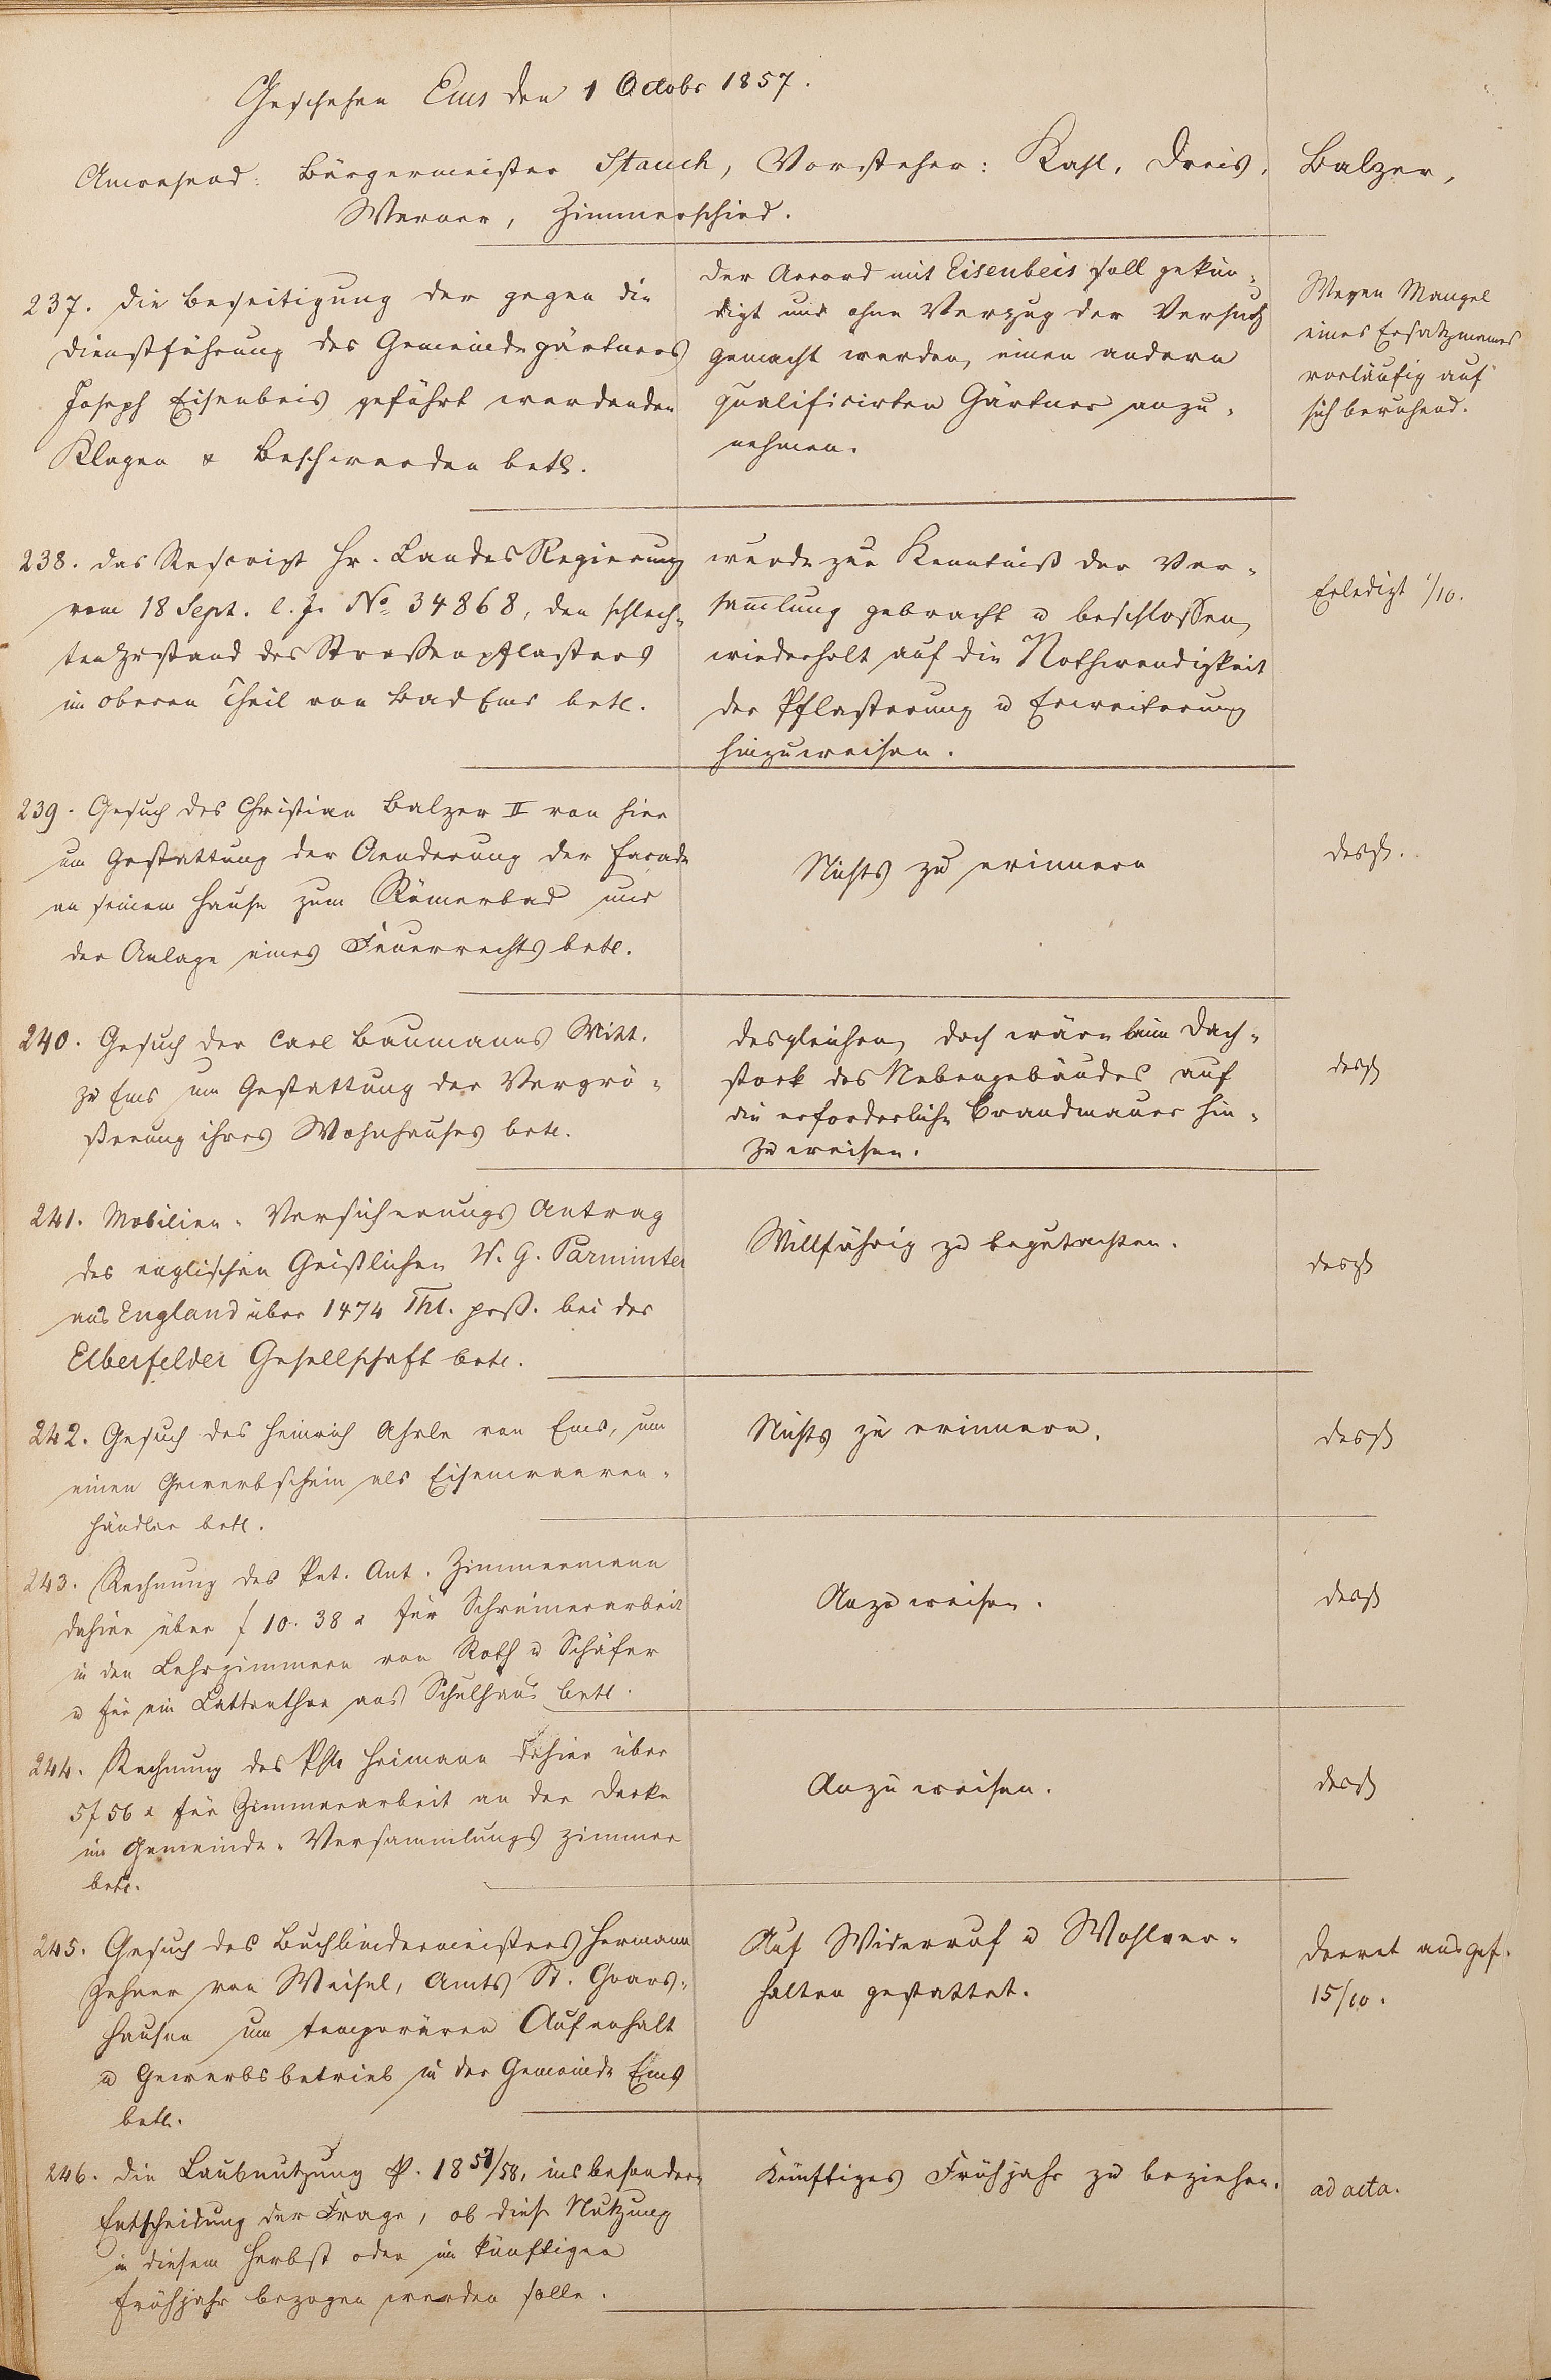 Geschehen Ems den 1 Octobr 1857.
Anwesend: Bürgermeister Stauch, Vorsteher: Kahl, Dreis, Balzer,
Werner, Zimmerschied.
237. Die Beseitigung der gegen die
Dienstführung des Gemeindegärtners
Joseph Eisenbeis geführt werdenden
Klagen & Beschwerden betr.
Der Accord mit Eisenbeis soll gekün-
digt und ohne Verzug der Versuch
gemacht werden, einen andern
qualificirten Gärtner anzu-
nehmen.
Wegen Mangel
eines Ersatzmannes
vorläufig auf
sich beruhend.
238. Das Rescript Hr. Landes Regierung
vom 18 Sept. l. J. No 34868, den schlech-
ten Zustand des Straßenpflasters
im oberen Theil von Bad Ems betr.
wurde zur Kenntniß der Ver-
samlung gebracht u beschlossen,
wiederholt auf die Nothwendigkeit
der Pflasterung u Erweiterung
hinzuweisen.
Erledigt 1/10.
239. Gesuch des Christian Balzer II von hier
um Gestattung der Aenderung der Facade
an seinem Hause zum Römerbad und
der Anlage eines Feuerrechts betr.
Nichts zu erinnern
desgl.
240. Gesuch der Carl Baumanns Witt.
zu Ems um Gestattung der Vergrö-
ßerung ihres Wohnhauses betr.
desgleichen, doch wäre beim Dach-
stock des Nebengebäudes auf
die erforderliche Brandmauer hin-
zu weisen.
desgl
241. Mobilien-Versicherungs Antrag
des englischen Geistlichen W. G. Parminter
aus England über 1474 Thl. prß. bei der
Elberfelder Gesellschaft betr.
Willfährig zu begutachten.
desgl
242. Gesuch des Heinrich Ahrle von Ems, um
einen Gewerbschein als Eisenwaaren-
händler betr.
Nichts zu erinnern.
desgl
243. Rechnung des Pet. Ant. Zimmermann
dahier über f 10. 38 x für Schreinerarbeit
in den Lehrzimmern von Roth u Schäfer
u für ein Lattenthor ans Schulhaus betr.
Anzuweisen.
desgl
244. Rechnung des Phil. Heimann dahier über
5 f 56 x für Zimmerarbeit an der Decke
im Gemeinde-Versammlungszimmer
betr.
Anzuweisen.
desgl
245. Gesuch des Buchbindermeisters Hermann
Zehner von Weisel, Amts St. Goars-
hausen um temporären Aufenhalt
u Gewerbsbetrieb in der Gemeinde Ems
betr.
Auf Widerruf u Wohlver-
halten gestattet.
Decret ausgef.
15/10.
246. Die Laubnutzung p. 1857/58, insbesondere
Entscheidung der Frage, ob diese Nutzung
in diesem Herbst oder im künftigen
Frühjahr bezogen werden solle.
Künftiges Frühjahr zu beziehen.
ad acta.